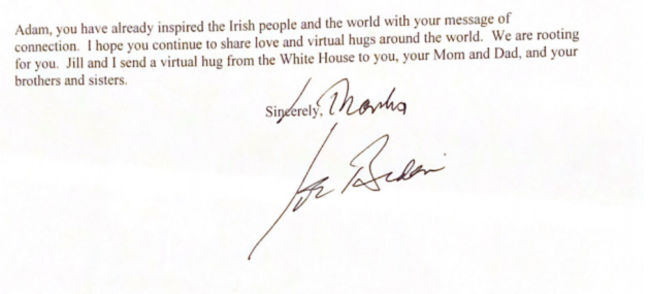 Adam, you have already inspired the Irish people and the world with your message of
connection.  I hope you continue to share love and virtual hugs around the world.  We are rooting
for you.  Jill and I send a virtual hug from the White House to you, your Mom and Dad, and your
brothers and sisters.
Sincerely, Thanks
Joe Biden